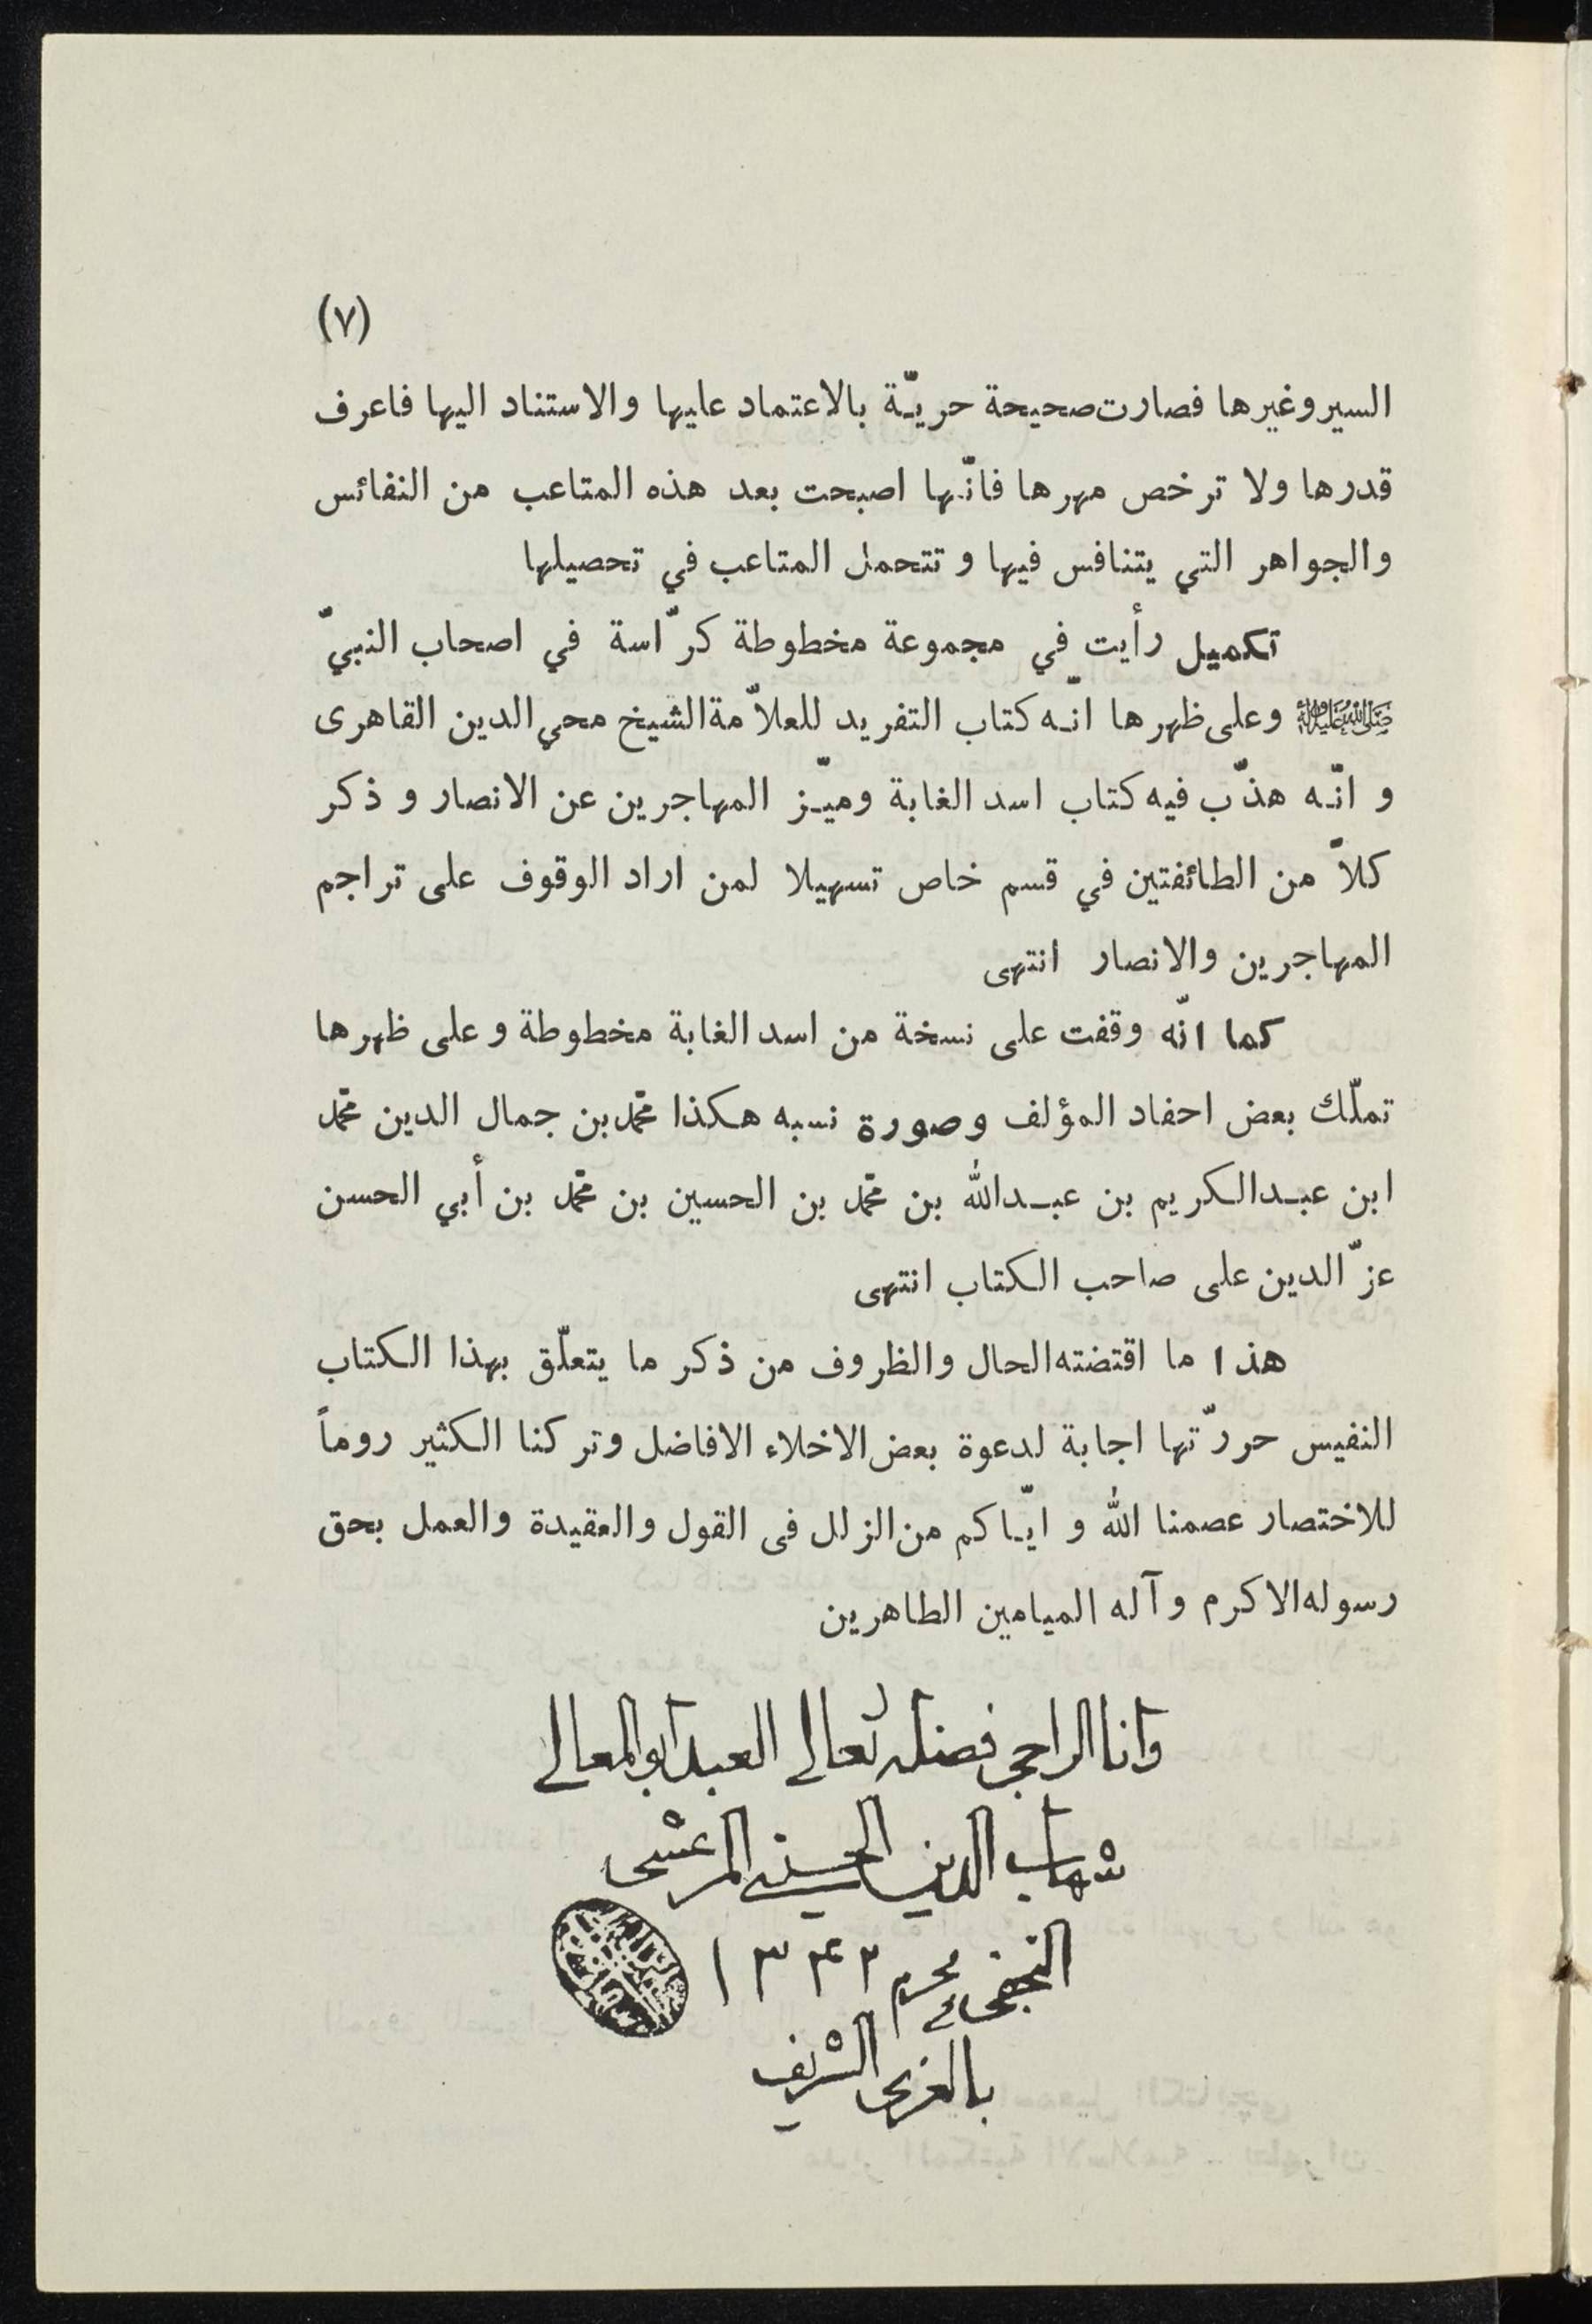 (٧)
السير وغيرها فصارت صحيحة حريّة بالاعتماد عليها والاستناد اليها فاعرف
قدرها ولا ترخص مهرها فانّها اصبحت بعد هذه المتاعب من النفائس
والجواهر التي يتنافس فيها و تتحمل المتاعب في تحصيلها
تكميل رأيت في مجموعة مخطوطة كرّاسة في اصحاب النبيّ
ﷺ وعلى ظهرها انّه كتاب التفريد للعلاّمة الشيخ محي الدين القاهرى
و انّه هذّب فيه كتاب اسد الغابة وميّز المهاجرين عن الانصار و ذكر
كلاّ من الطائفتين في قسم خاص تسهيلا لمن اراد الوقوف على تراجم
المهاجرين والانصار انتهى
كما انّه وقفت على نسخة من اسد الغابة مخطوطة و على ظهرها
تملّك بعض احفاد المؤلف وصورة نسبه هكذا محمّد بن جمال الدين محمّد
ابن عبدالكريم بن عبدالله بن محمّد بن الحسين بن محمّد بن أبي الحسن
عزّ الدين على صاحب الكتاب انتهى
هذا ما اقتضته الحال والظروف من ذكر ما يتعلّق بهذا الكتاب
النفيس حررّتها اجابة لدعوة بعض الاخلاء الافاضل وتركنا الكثير روماً
للاختصار عصمنا الله و ايّاكم من الزلل فى القول والعقيدة والعمل بحق
رسوله الاكرم وآله الميامين الطاهرين
وانا الراجى فضله تعالى العبد ابو المعالى
شهاب الدين الحسينى المرعشى
النجفى محرم ١٣٤٢
بالغرى الشريف